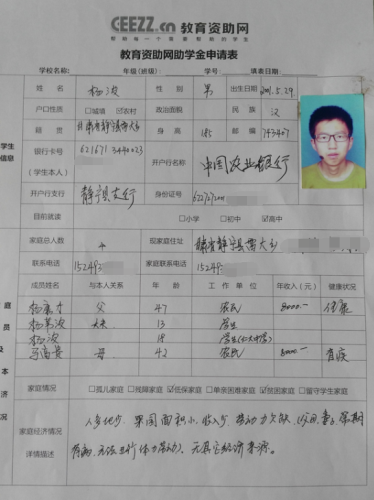 CEEZZ.cn 教育资助网
帮助每一个需要帮助的学生
教育资助网助学金申请表
学校名称: 年级(班级): 学号: 填表日期:
姓名 杨 性别 男 出生日期 2001.5.29
户口性质 □城镇 ☑农村 政治面貌 民族 汉
籍贯 甘肃省静宁县 身高 185 邮编 743407
学生信息
银行卡号(学生本人) 621671 3440023 开户行名称 中国农业银行
开户行支行 静宁县支行 身份证号 622727200
目前就读 □小学 □初中 ☑高中
家庭总人数 4 现家庭住址 甘肃省静宁县
联系电话 15249 家庭联系电话 15249
成员姓名 与本人关系 年龄 工作单位 年收入(元) 健康状况
父 47 农民 8000 健康
13 学生
18 学生
母 42 农民 8000 有疾
家庭情况 □孤儿家庭 □残障家庭 ☑低保家庭 □单亲困难家庭 ☑贫困家庭 □留守学生家庭
家庭经济情况详情描述
人多地少,果园面积小,收入少,劳动力欠缺,
有病,无法进行体力劳动,无其它经济来源。